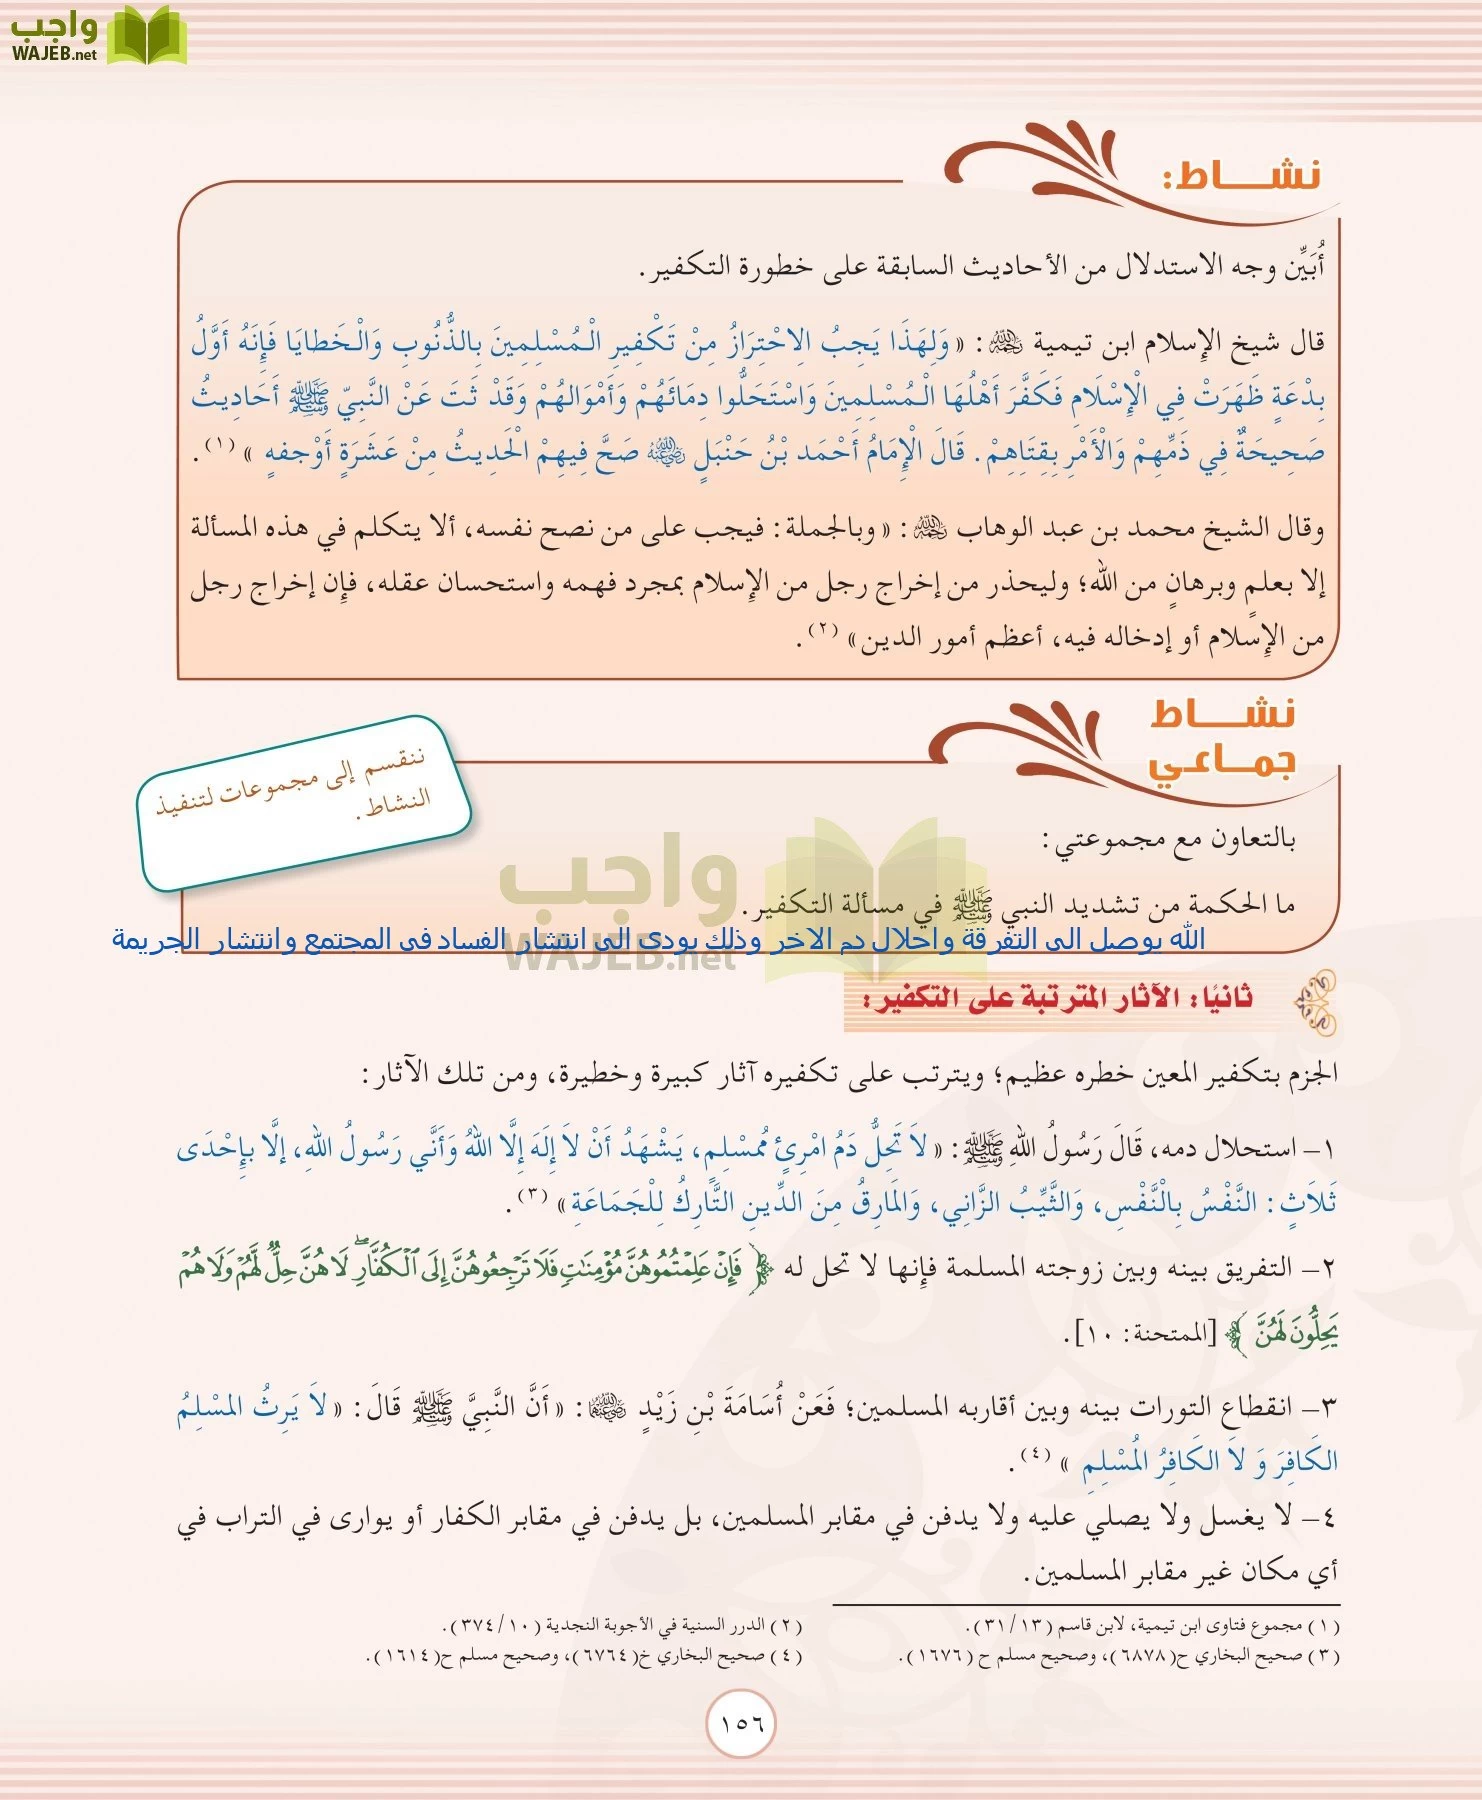 واجب
WAJEB.net
نشـــاط:
أُبَيِّن وجه الاستدلال من الأحاديث السابقة على خطورة التكفير.
قال شيخ الإسلام ابن تيمية رحمه الله: « وَلِهَذَا يَجِبُ الِاحْتِرَازُ مِنْ تَكْفِيرِ الْمُسْلِمِينَ بِالذُّنُوبِ وَالْخَطايَا فَإِنَهُ أَوَّلُ
بِدْعَةٍ ظَهَرَتْ فِي الْإِسْلَامِ فَكَفَّرَ أَهْلُهَا الْمُسْلِمِينَ وَاسْتَحَلُّوا دِمَائَهُمْ وَأَمْوَالهُمْ وَقَدْ ثَتَ عَنْ النَّبِيّ ﷺ أَحَادِيثُ
صَحِيحَةٌ فِي ذَمِّهِمْ وَالْأَمْرِ بِقِتَاهِمْ. قَالَ الْإِمَامُ أَحْمَد بْنُ حَنْبَلٍ رضي الله عنه صَحَّ فِيهِمْ الْحَدِيثُ مِنْ عَشَرَةٍ أَوْجفهٍ » (١).
وقال الشيخ محمد بن عبد الوهاب رحمه الله: « وبالجملة: فيجب على من نصح نفسه، ألا يتكلم في هذه المسألة
إلا بعلمٍ وبرهانٍ من الله؛ وليحذر من إخراج رجل من الإسلام بمجرد فهمه واستحسان عقله، فإن إخراج رجل
من الإسلام أو إدخاله فيه، أعظم أمور الدين» (٢).
نشـــاط
جمـاعـي
ننقسم إلى مجموعات لتنفيذ
النشاط.
بالتعاون مع مجموعتي:
ما الحكمة من تشديد النبي ﷺ في مسألة التكفير.
الله يوصل الى التفرقة واحلال دم الاخر وذلك يودى الى انتشار الفساد فى المجتمع وانتشار الجريمة
واجب
WAJEB.net
ثانيًا: الآثار المترتبة على التكفير:
الجزم بتكفير المعين خطره عظيم؛ ويترتب على تكفيره آثار كبيرة وخطيرة، ومن تلك الآثار:
١– استحلال دمه، قَالَ رَسُولُ اللهِ ﷺ: « لاَ تَحِلُّ دَمُ امْرِئٍ مُمسْلِمٍ، يَشْهَدُ أَنْ لاَ إِلَهَ إِلَّا اللهُ وَأَنَّي رَسُولُ اللهِ، إلَّا بِإِحْدَى
ثَلاَثٍ: النَّفْسُ بِالْنَّفْسِ، وَالثَّيِّبُ الزَّانِي، وَالمَارِقُ مِنَ الدِّينِ التَّارِكُ لِلْجَمَاعَةِ» (٣).
٢– التفريق بينه وبين زوجته المسلمة فإنها لا تحل له ﴿ فَإِنْ عَلِمْتُمُوهُنَّ مُؤْمِنَٰتٍ فَلَا تَرْجِعُوهُنَّ إِلَى ٱلْكُفَّارِ ۖ لَا هُنَّ حِلٌّ لَّهُمْ وَلَا هُمْ
يَحِلُّونَ لَهُنَّ ﴾ [الممتحنة: ١٠].
٣– انقطاع التورات بينه وبين أقاربه المسلمين؛ فَعَنْ أُسَامَةَ بْنِ زَيْدٍ رضي الله عنهما: «أَنَّ النَّبِيَّ ﷺ قَالَ: « لاَ يَرِثُ المسْلِمُ
الكَافِرَ وَ لاَ الكَافِرُ المُسْلِمِ » (٤).
٤– لا يغسل ولا يصلي عليه ولا يدفن في مقابر المسلمين، بل يدفن في مقابر الكفار أو يوارى في التراب في
أي مكان غير مقابر المسلمين.
(١) مجموع فتاوى ابن تيمية، لابن قاسم (٣١/١٣).
(٢) الدرر السنية في الأجوبة النجدية (٣٧٤/١٠).
(٣) صحيح البخاري ح(٦٨٧٨)، وصحيح مسلم ح (١٦٧٦).
(٤) صحيح البخاري خ(٦٧٦٤)، وصحيح مسلم ح(١٦١٤).
١٥٦